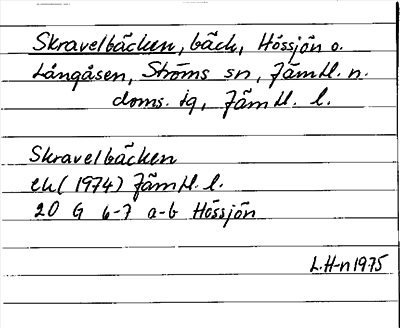 Skravelbäcken, bäck, Hössjön o.
Långåsen, Ströms sn, Jämtl. n.
doms. jq, Jämtl. l.
Skravelbäcken
ek (1974) Jämtl. l.
20 G 6-7 a-b Hössjön
L.H-n 1975